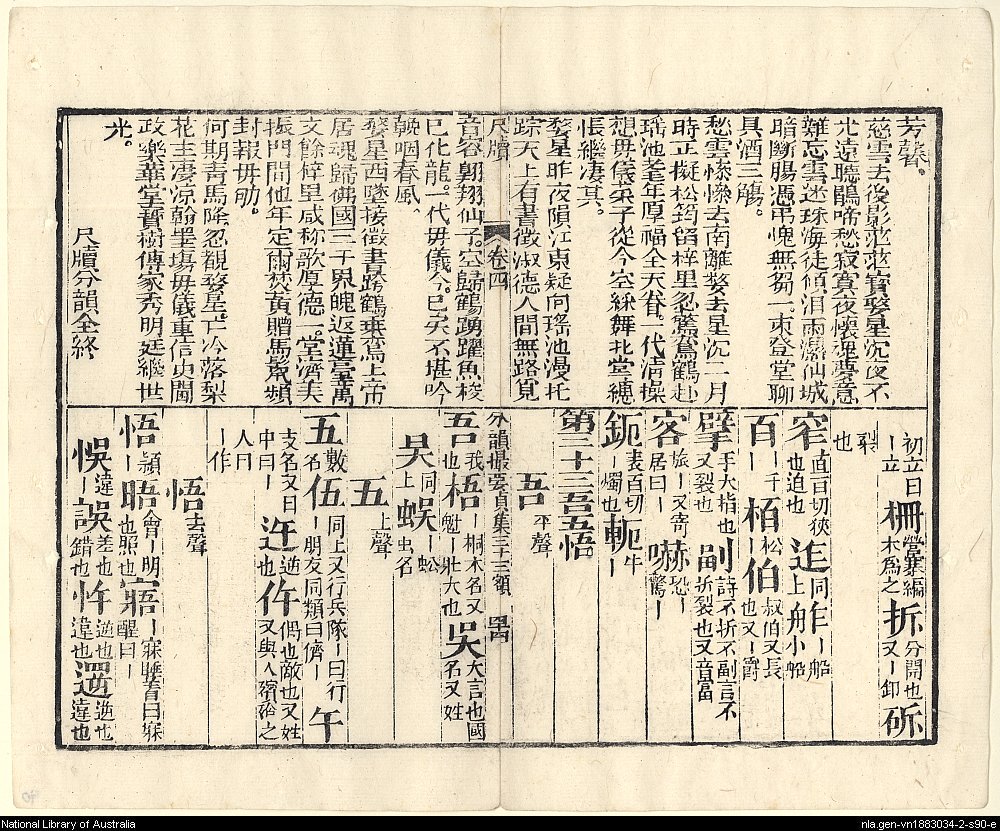 芳聲。
慈雲去後影茫茫寶婺星沉夜不
尤遠聽鵑啼愁寂寞夜懷魂夢意
難忘雲迷珠海徒傾泪雨灑仙城
暗斷腸憑弔愧無芻一束登堂聊
具酒三觴。
愁雲慘慘去南離婺去星沉二月
時正擬松筠留梓里忍驚鸞鶴赴
瑤池耄年厚福全天眷一代清操
想毋儀菜子從今空綵舞北堂總
悵繐凄其。
婺星昨夜隕江東疑向瑤池漫托
踪天上有書徵淑德人間無路覓
尺牘 卷四
音容翱翔仙子。空歸鶴踴躍魚梭
已化龍。一代毋儀今已矣不堪吟
輓咽春風。
婺星西墜接徵書跨鶴乘鸞上帝
居魂歸佛國三千界魄返蓬臺萬
丈餘梓里咸称歌厚德一堂濟美
振門閭他年定爾焚黄贈馬鬣頻
封報毋劬。
何期青馬降忽観婺星亡冷落梨
花主凄涼翰墨塲毋儀重信史閫
政樂華堂寳樹傳家秀明廷繼世
光。
尺牘分韻全終
初立曰
｜立柵營寨編木爲之拆分開也又｜卸斫
裂也
窄直百切狹也迫也迮同上舴｜小船
百｜千栢｜松伯叔伯又長也又｜爵
擘手大指也又裂也副詩不拆不副言不折裂也又音富
客旅｜又寄居曰｜嚇恐｜驚｜
鈪表百切｜燭也軛牛｜
第三十三吾五悟
吾平聲
分韻撮要貞集三十三額
吾我也梧｜桐木名又魁｜壯大也吳大言也國名又姓
吳同上蜈｜蚣虫名
五上聲
五數名伍同上又行兵隊｜曰行｜朋友同類曰儕｜午
支名又日中曰｜迕逆也仵偶也敵也又姓又與人殯殮之
人曰｜作
悟去聲
悟頴｜晤會｜明也照也寤｜寐睡着曰寐醒曰｜
悞違｜誤差也錯也忤逆也違也遻逆也違也
National Library of Australia
nla.gen-vn1883034-2-s90-e